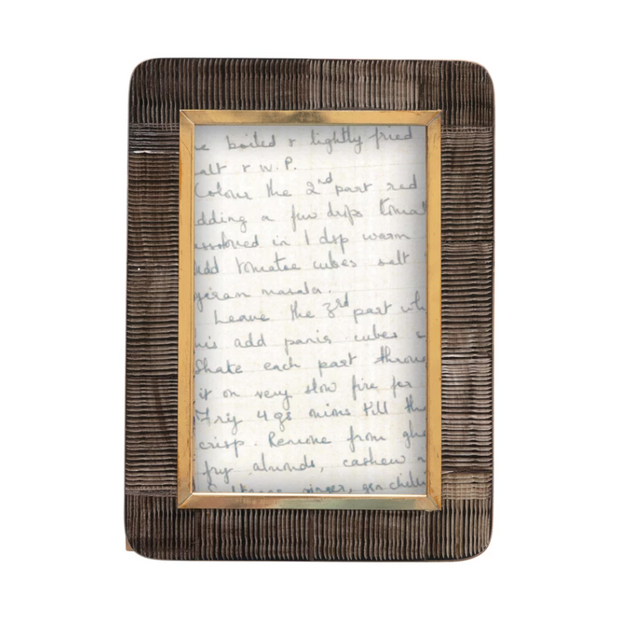 e boiled & lightly fried
alt & W.P.
Colour the 2nd part red
dding a few drops tomat
ssolved in 1 dsp warm
Add tomatoe cubes salt
garam masala.
Leave the 3rd part wh
his add panir cubes
Shake each part throu
it on very slow fire for
Fry 4 onions till th
crisp. Remove from ghe
fry almonds, cashew n
ginger, grn chilli